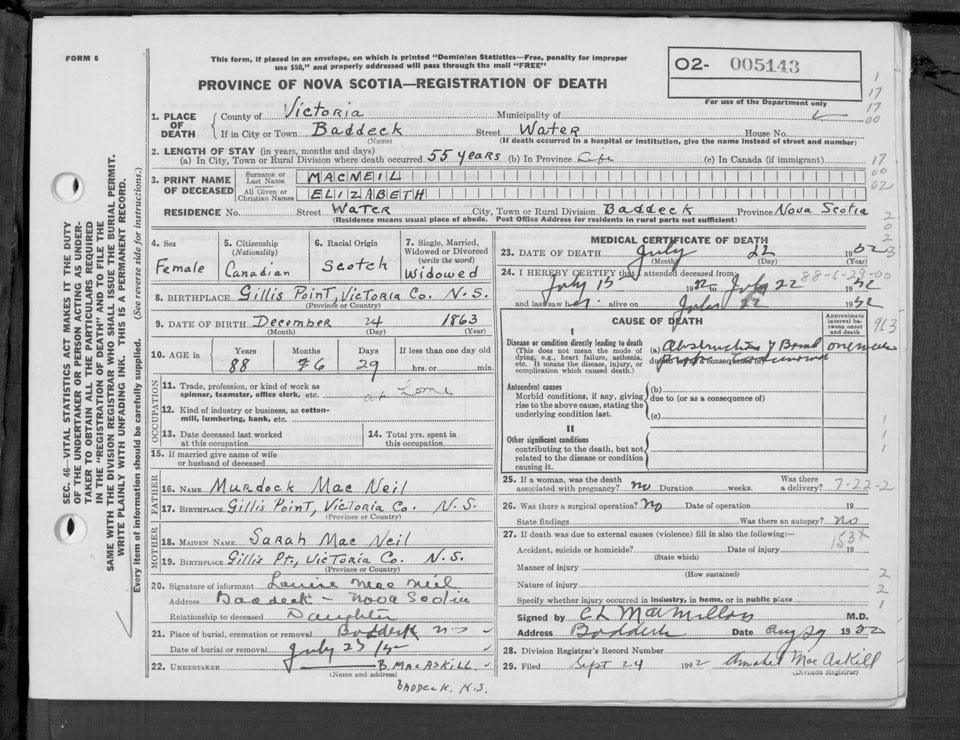 FORM 6
This form, if placed in an envelope, on which is printed "Dominion Statistics—Free, penalty for improper
use $50," and properly addressed will pass through the mail "FREE"
PROVINCE OF NOVA SCOTIA—REGISTRATION OF DEATH
O2- 005143
For use of the Department only
1. PLACE OF DEATH
County of Victoria Municipality of
If in City or Town Baddeck Street Water House No.
(Name) (If death occurred in a hospital or institution, give the name instead of street and number)
2. LENGTH OF STAY (in years, months and days)
(a) In City, Town or Rural Division where death occurred 55 years (b) In Province Life (c) In Canada (if immigrant)
3. PRINT NAME OF DECEASED
Surname or Last Name MACNEIL
All Given or Christian Names ELIZABETH
RESIDENCE No. Street Water City, Town or Rural Division Baddeck Province Nova Scotia
(Residence means usual place of abode. Post Office Address for residents in rural parts not sufficient)
4. Sex
Female
5. Citizenship
(Nationality)
Canadian
6. Racial Origin
Scotch
7. Single, Married,
Widowed or Divorced
(write the word)
Widowed
8. BIRTHPLACE Gillis Point, Victoria Co. N.S.
(Province or Country)
9. DATE OF BIRTH December 24 1863
(Month) (Day) (Year)
10. AGE in
Years Months Days If less than one day old
88 6 29 hrs. or min.
OCCUPATION
11. Trade, profession, or kind of work as
spinner, teamster, office clerk, etc. at
12. Kind of industry or business, as cotton-
mill, lumbering, bank, etc.
13. Date deceased last worked
at this occupation
14. Total yrs. spent in
this occupation
15. If married give name of wife
or husband of deceased
FATHER
16. Name Murdock Mac Neil
17. Birthplace Gillis Point, Victoria Co. N.S.
(Province or Country)
MOTHER
18. Maiden Name Sarah Mac Neil
19. Birthplace Gillis Pt., Victoria Co. N.S.
(Province or Country)
20. Signature of informant Louise Mac Neil
Address Baddeck - Nova Scotia
Relationship to deceased Daughter
21. Place of burial, cremation or removal Baddeck N.S.
Date of burial or removal July 25/52
22. UNDERTAKER B. MACASKILL.
(Name and address)
BADDECK. N.S.
MEDICAL CERTIFICATE OF DEATH
23. DATE OF DEATH July 22 1952
(Month) (Day) (Year)
24. I HEREBY CERTIFY that I attended deceased from
88-6-29-00
July 15 1952 to July 22 1952
and last saw h alive on July 22 1952
CAUSE OF DEATH
Approximate interval between onset and death
I
Disease or condition directly leading to death
(This does not mean the mode of
dying, e.g., heart failure, asthenia,
etc. It means the disease, injury, or
complication which caused death.)
(a) Obstruction of Bowel one week
due to (or as a consequence of)
Antecedent causes
Morbid conditions, if any, giving
rise to the above cause, stating the
underlying condition last.
(b)
due to (or as a consequence of)
(c)
II
Other significant conditions
contributing to the death, but not
related to the disease or condition
causing it.
25. If a woman, was the death
associated with pregnancy? No Duration weeks. Was there
a delivery? 7-22-2
26. Was there a surgical operation? No Date of operation 19
State findings Was there an autopsy? No
27. If death was due to external causes (violence) fill in also the following:—
Accident, suicide or homicide? Date of injury 19
(State which)
Manner of injury
(How sustained)
Nature of injury
Specify whether injury occurred in industry, in home, or in public place
Signed by C L MacMillan M.D.
Address Baddeck Date Aug 29 1952
28. Division Registrar's Record Number
29. Filed Sept 24 1952 Annabel Mac Askill
(Division Registrar)
SEC. 46—VITAL STATISTICS ACT MAKES IT THE DUTY
OF THE UNDERTAKER OR PERSON ACTING AS UNDER-
TAKER TO OBTAIN ALL THE PARTICULARS REQUIRED
IN THE "REGISTRATION OF DEATH" AND TO FILE THE
SAME WITH THE DIVISION REGISTRAR WHO SHALL ISSUE THE BURIAL PERMIT.
WRITE PLAINLY WITH UNFADING INK. THIS IS A PERMANENT RECORD.
Every item of information should be carefully supplied. (See reverse side for instructions.)
1
17
17
00
17
00
02
2
0
2
3
913
1
1
1
153X
2
2
1